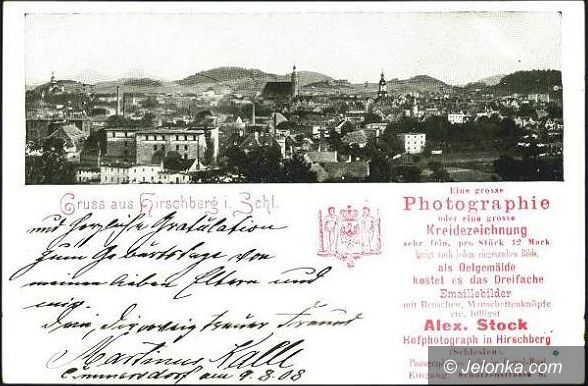 Gruss aus Hirschberg i. Schl.
und herzliche Gratulation
zum Geburtstage von
meinen lieben Eltern und
mir.
Dein, Dir ewig treuer Freund
Martinus Kalle
am 9.8.08
Eine grosse
Photographie
oder eine grosse
Kreidezeichnung
sehr fein, pro Stück 12 Mark
fertigt nach jedem eingesandten Bilde,
als Oelgemälde
kostet es das Dreifache
Emaillebilder
mit Broschen, Manschettenknöpfe
etc. billigst
Alex. Stock
Hofphotograph in Hirschberg
(Schlesien),
Eingang: Schützenstrasse
© Jelonka.com